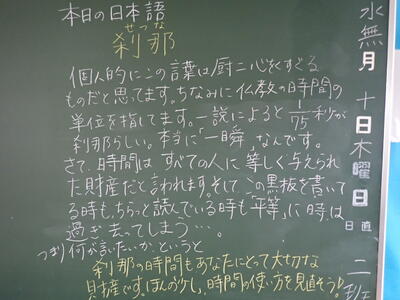 本日の日本語
せつな
刹那
個人的にこの言葉は厨二心をくすぐる
ものだと思ってます。ちなみに仏教の時間の
単位を指してます。一説によると1/75秒が
刹那らしい。本当に「一瞬」なんです。
さて、時間は すべての人に 等しく与えられ
た財産だと言われます。そして、この黒板を書いて
る時も、ちらっと読んでいる時も「平等」に時は
過ぎ去ってしまう…。
つまり何が言いたいか、というと
刹那の時間もあなたにとって大切な
財産です。ほんの少し、時間の使い方を見直そう
水無月十日木曜日
日直
二